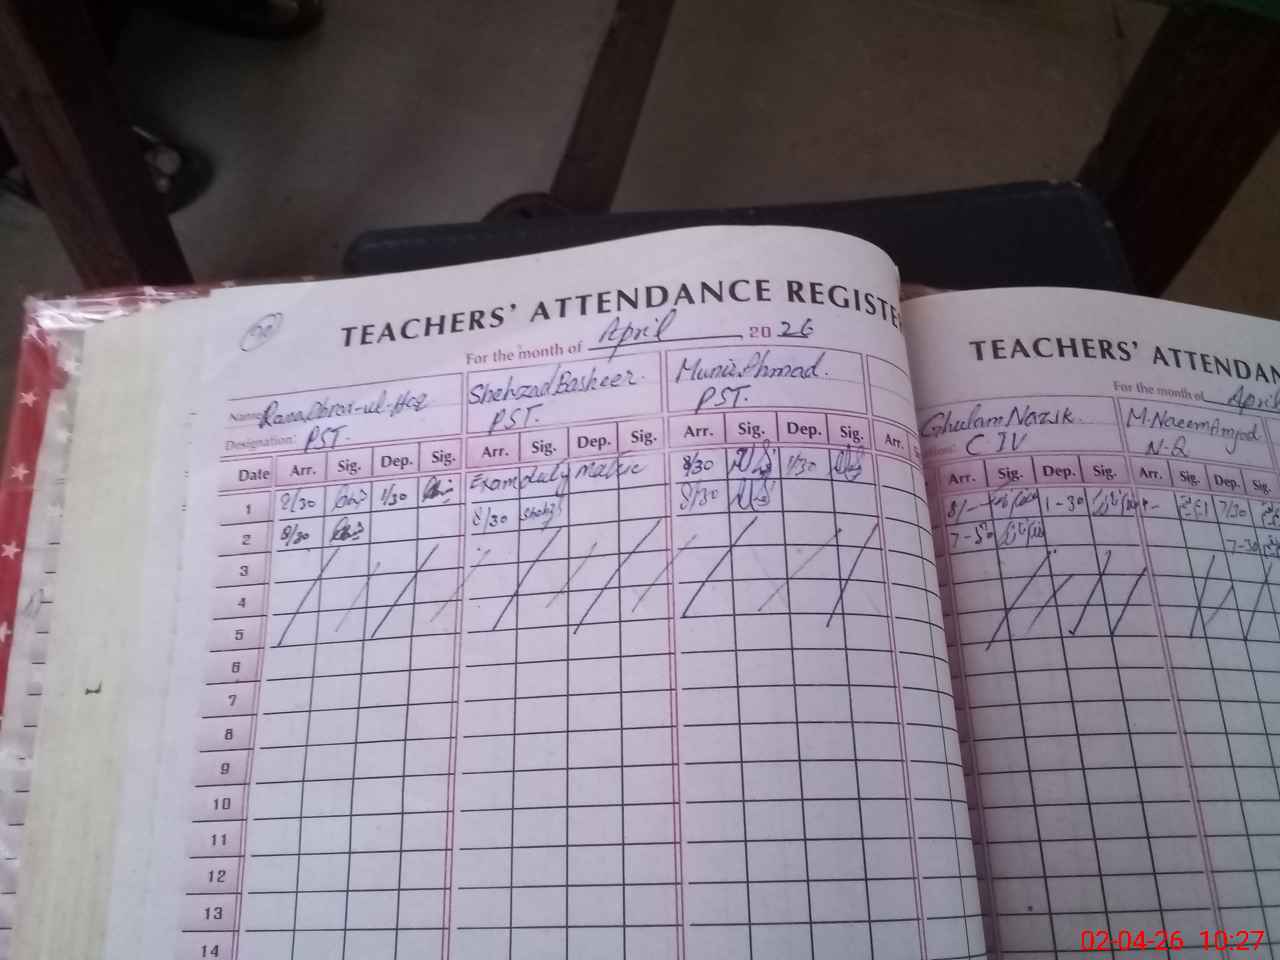 TEACHERS' ATTENDANCE REGISTE
For the month of April 2026
Name: Rana Abrar-ul-Haq
Shehzad Basheer.
Munir Ahmad.
Designation: PST.
PST.
PST.
Date Arr. Sig. Dep. Sig. Arr. Sig. Dep. Sig. Arr. Sig. Dep. Sig. Arr.
1 8/30 1/30 Exam duty 8/30 1/30
2 8/30 8/30 Shehz 8/30
3
4
5
6
7
8
9
10
11
12
13
14
TEACHERS' ATTENDAN
For the month of April
Ghulam Nazik.
M. Naeem Amjad
C IV
N-Q
Arr. Sig. Dep. Sig. Arr. Sig. Dep. Sig.
8/- 1-30 7/30
7-30
02-04-26 10:27